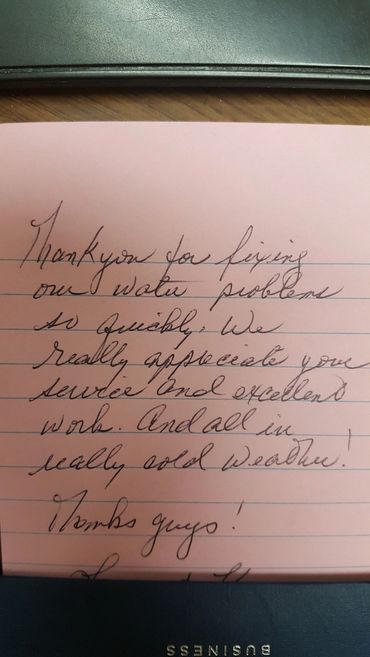 Thank you for fixing
our water problems
so quickly. We
really appreciate your
service and excellent
work. And all in
really cold weather!
Thanks guys!
BUSINESS